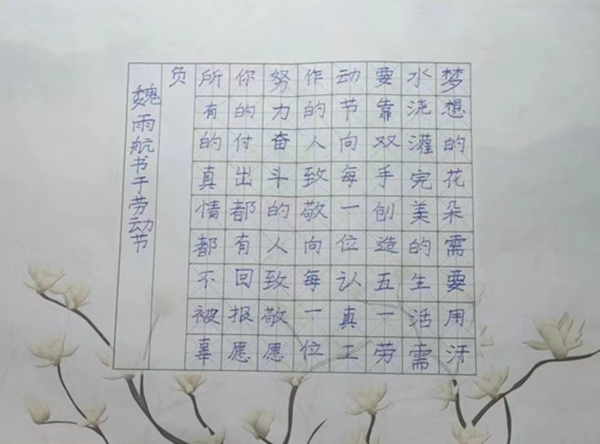 梦想的花朵需要用汗
水浇灌完美的生活需
要靠双手创造五一劳
动节向每一位认真工
作的人致敬向每一位
努力奋斗的人致敬愿
你的付出都有回报愿
所有的真情都不被辜
负
魏雨航书于劳动节